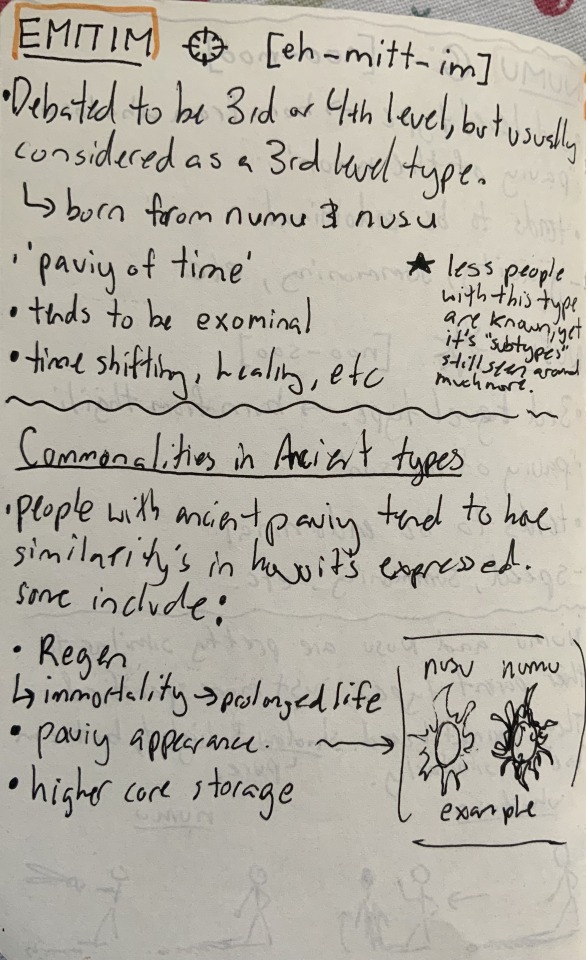 EMITIM [eh-mitt-im]
• Debated to be 3rd or 4th level, but usually
considered as a 3rd level type.
↳ born from numu & nusu
• 'paviy of time'
• tends to be exominal
• time shifting, healing, etc
★ less people
with this type
are known, yet
it's "subtypes"
still seen around
much more.
Commonalities in Ancient types
• people with ancient paviy tend to have
similarity's in how it's expressed.
some include:
• Regen
↳ immortality → prolonged life
• paviy appearance. →
• higher core storage
nusu numu
example